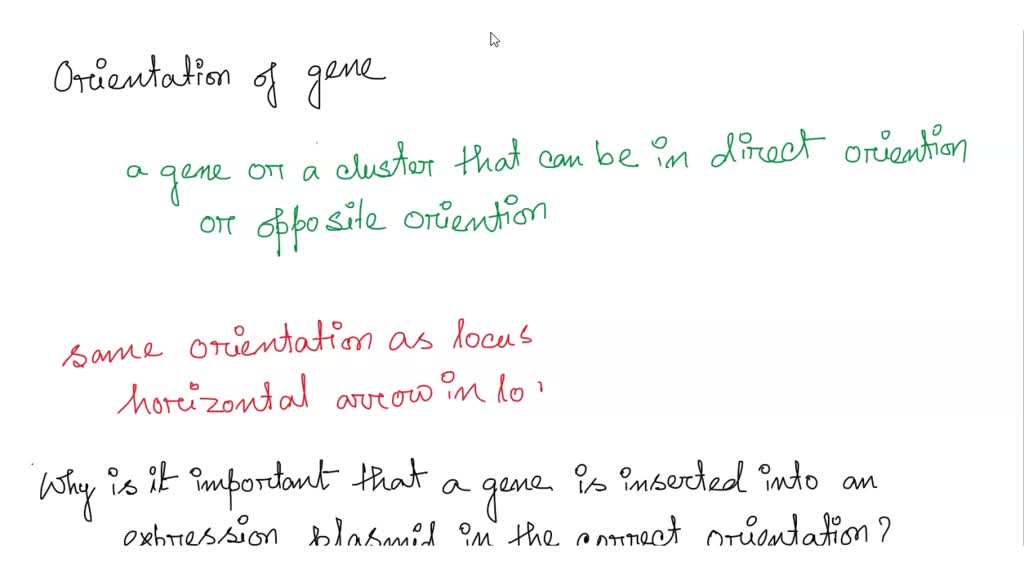 Orientation of gene
a gene or a cluster that can be in direct oriention
or opposite oriention
same orientation as locus
horizontal arrow in lo
Why is it important that a gene is inserted into an
expression plasmid in the correct orientation?